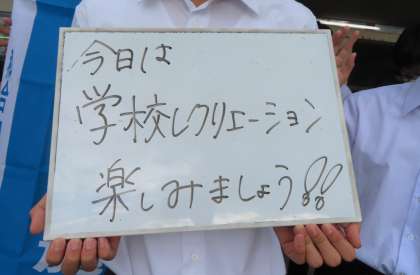 今日は
学校レクリエーション
楽しみましょう!!